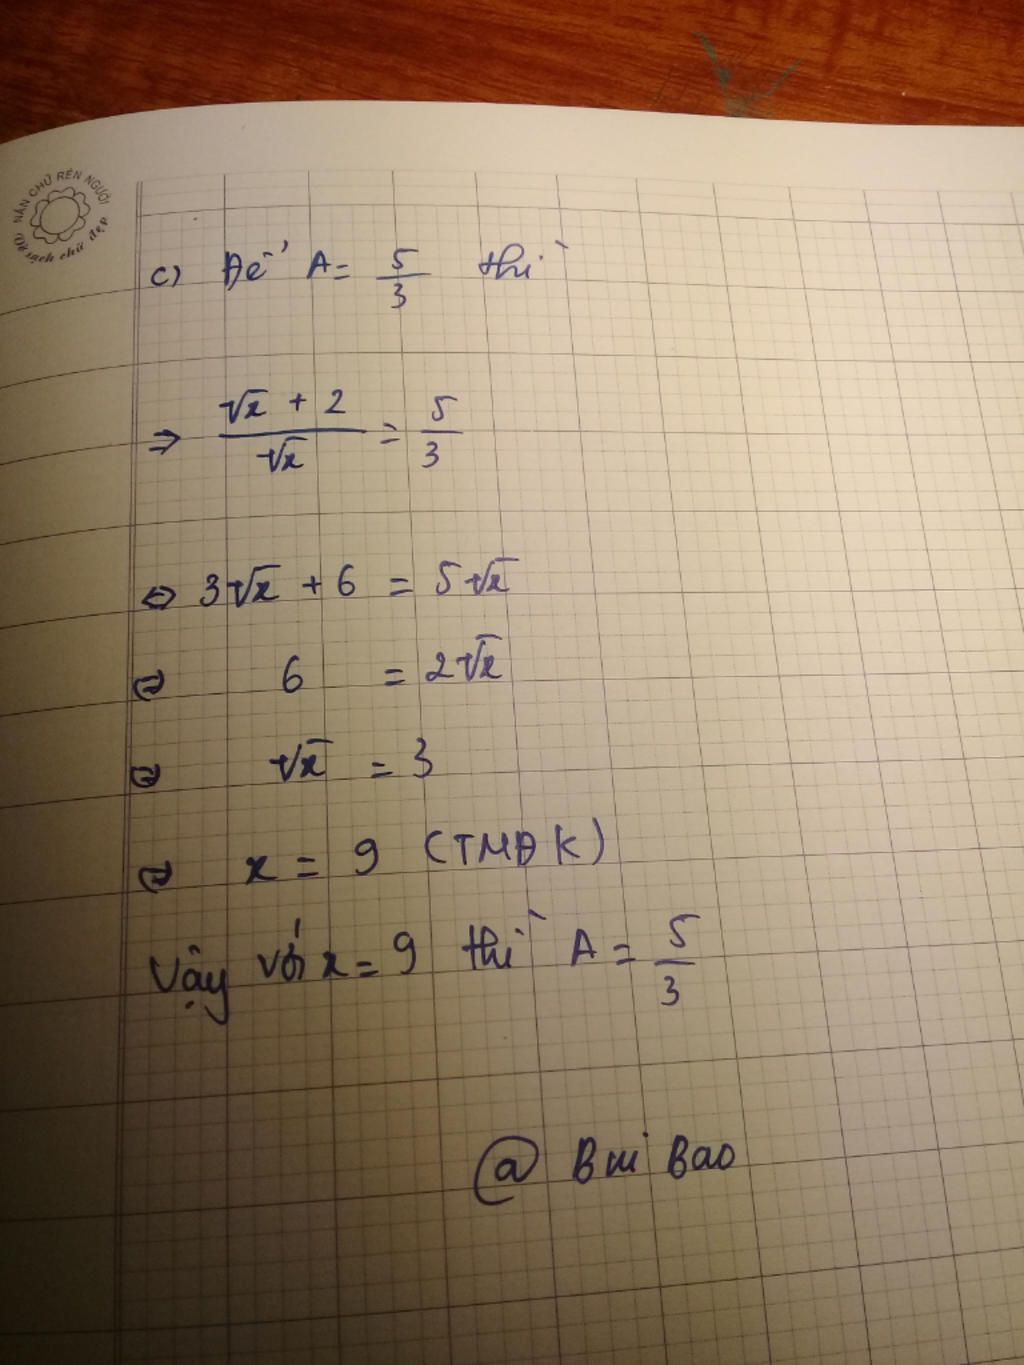 NẮN CHỮ RÈN NGƯỜI
Vở sạch chữ đẹp
c) Để A = 5/3 thì
⇒ (√x + 2)/√x = 5/3
⇔ 3√x + 6 = 5√x
⇔ 6 = 2√x
⇔ √x = 3
⇔ x = 9 (TMĐK)
Vậy với x = 9 thì A = 5/3
@ Bui Bao